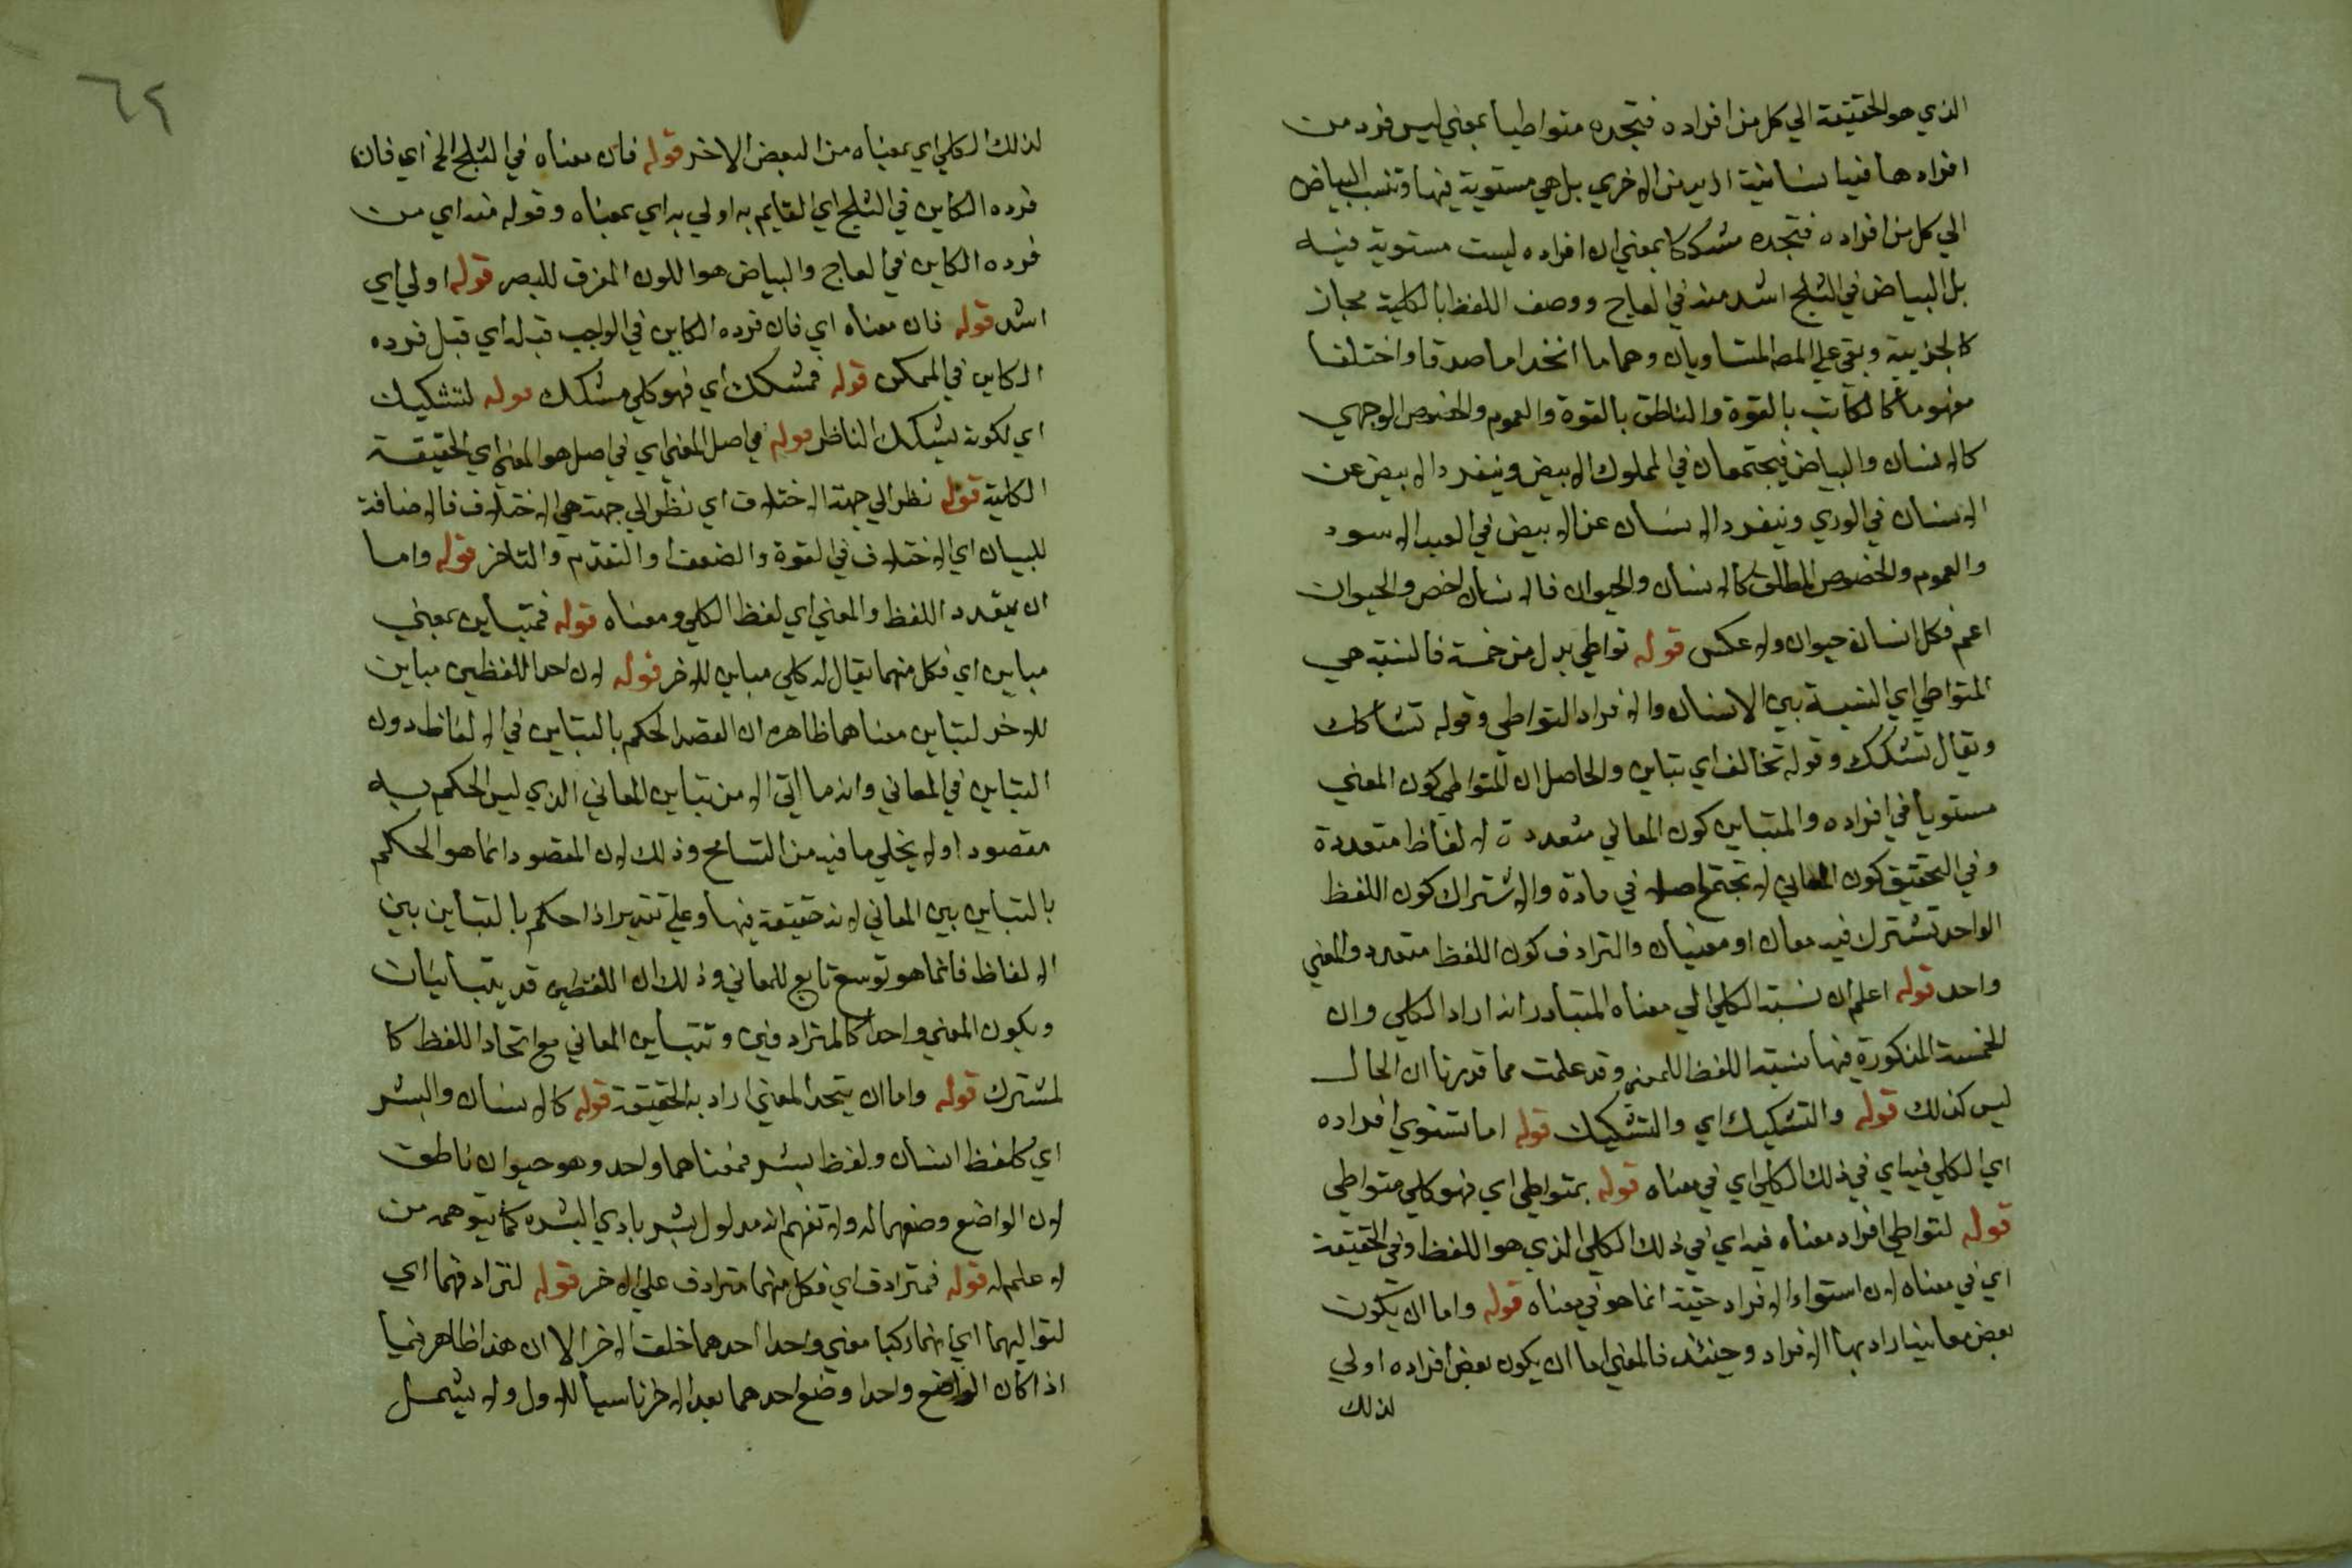 الذي هو الحقيقة الي كل من افراده فتجده متواطيا بمعني ليس فرد من
افراده بل هي مستوية فيها وتنسب البياض
الي كل من افراده فتجده مشككا بمعني ان افراده ليست مستوية فيه
بل البياض في الثلج اشد منه في العاج ووصف اللفظ بالكلية مجاز
كالجزيية وبقي علي المص المتساويان وهما ما اتحدا ماصدقا واختلفا
مفهوما كالكاتب بالقوة والناطق بالقوة والعموم والخصوص الوجهي
كالانسان والبياض فيجتمعان في المملوك الابيض وينفرد الابيض عن
الانسان في الوري وينفرد الانسان عن الابيض في العبد الاسود
والعموم والخصوص المطلق كالانسان والحيوان فالانسان اخص والحيوان
اعم فكل انسان حيوان ولا عكس قوله تواطي بدل من خمسة فالنسبة هي
المتواطي اي النسبة بين الانسان والافراد التواطي وقوله تشاكك
ويقال تشكك وقوله تخالف اي تباين والحاصل ان المتواطي كون المعني
مستويا في افراده والمتباين كون المعاني متعددة لالفاظ متعددة
وفي التحقيق كون المعاني لا تجتمع في مادة والاشتراك كون اللفظ
الواحد تشترك فيه معان او معنيان والترادف كون اللفظ متعدد والمعني
واحد قوله اعلم ان نسبة الكلي الي معناه المتبادر انه اراد الكلي وان
الخمسة المذكورة فيها نسبة اللفظ للمعني وقد علمت مما قررنا ان الحال
ليس كذلك قوله والتشكيك اي والتشكيك قوله اما تستوي افراده
اي الكلي فيه اي في ذلك الكلي اي في معناه قوله بمتواطي اي فهو كلي متواطي
قوله لتواطي افراد معناه فيه اي في ذلك الكلي الذي هو اللفظ وفي الحقيقة
اي في معناه لان استواء الافراد حقيقة انما هو في معناه قوله واما ان يكون
بعض معانيه اراد بها الافراد وحينئذ فالمعني اما ان يكون بعض افراده اولي
لذلك
٦٢
لذلك الكلي اي بمعناه من البعض الاخر قوله فان معناه في الثلج الخ اي فان
فرده الكاين في الثلج اي القايم به اولي به اي بمعناه وقوله منه اي من
فرده الكاين في العاج والبياض هو اللون المفرق للبصر قوله اولي اي
اشد قوله فان معناه اي فان فرده الكاين في الواجب قبله اي قبل فرده
الكاين في الممكن قوله فمشكك اي فهو كلي مشكك قوله لتشكيك
اي لكونه يشكك الناظر قوله في اصل المعني اي في اصل هو المعني اي الحقيقة
الكلية قوله نظر الي جهة الاختلاف اي نظر الي جهة هي الاختلاف فالاضافة
للبيان اي الاختلاف في القوة والضعف او التقدم والتاخر قوله واما
ان يتعدد اللفظ والمعني اي لفظ الكلي ومعناه قوله فمتباين بمعني
مباين اي فكل منهما يقال له كلي مباين للاخر قوله لان احد اللفظين مباين
للاخر لتباين معناهما ظاهره ان القصد الحكم بالتباين في الالفاظ دون
التباين في المعاني وانه ما اتي الا من تباين المعاني الذي ليس الحكم به
مقصودا ولا يخلي ما فيه من التسامح وذلك لان المقصود انما هو الحكم
بالتباين بين المعاني لانه حقيقة فيها وعلي تقدير اذا حكم بالتباين بين
الالفاظ فانما هو توسع تابع للمعاني وذلك ان اللفظين قد يتباينان
ويكون المعني واحدا كالمترادفين وتتباين المعاني مع اتحاد اللفظ كا
لمشترك قوله واما ان يتحد المعني اراد به الحقيقة قوله كالانسان والبشر
اي كلفظ انسان ولفظ بشر فمعناهما واحد وهو حيوان ناطق
لان الواضع وضعهما له ولا تفهم انه مدلول بشر بادي البشره كما يتوهمه من
لا علم له قوله فمترادف اي فكل منهما مترادف علي الاخر قوله لترادفهما اي
لتواليهما اي انهما ركبا معني واحدا احدهما خلف الاخر الا ان هذا ظاهر فيما
اذا كان الواضع واحدا وضع احدهما بعد الاخر ناسيا للاول ولا يشمل